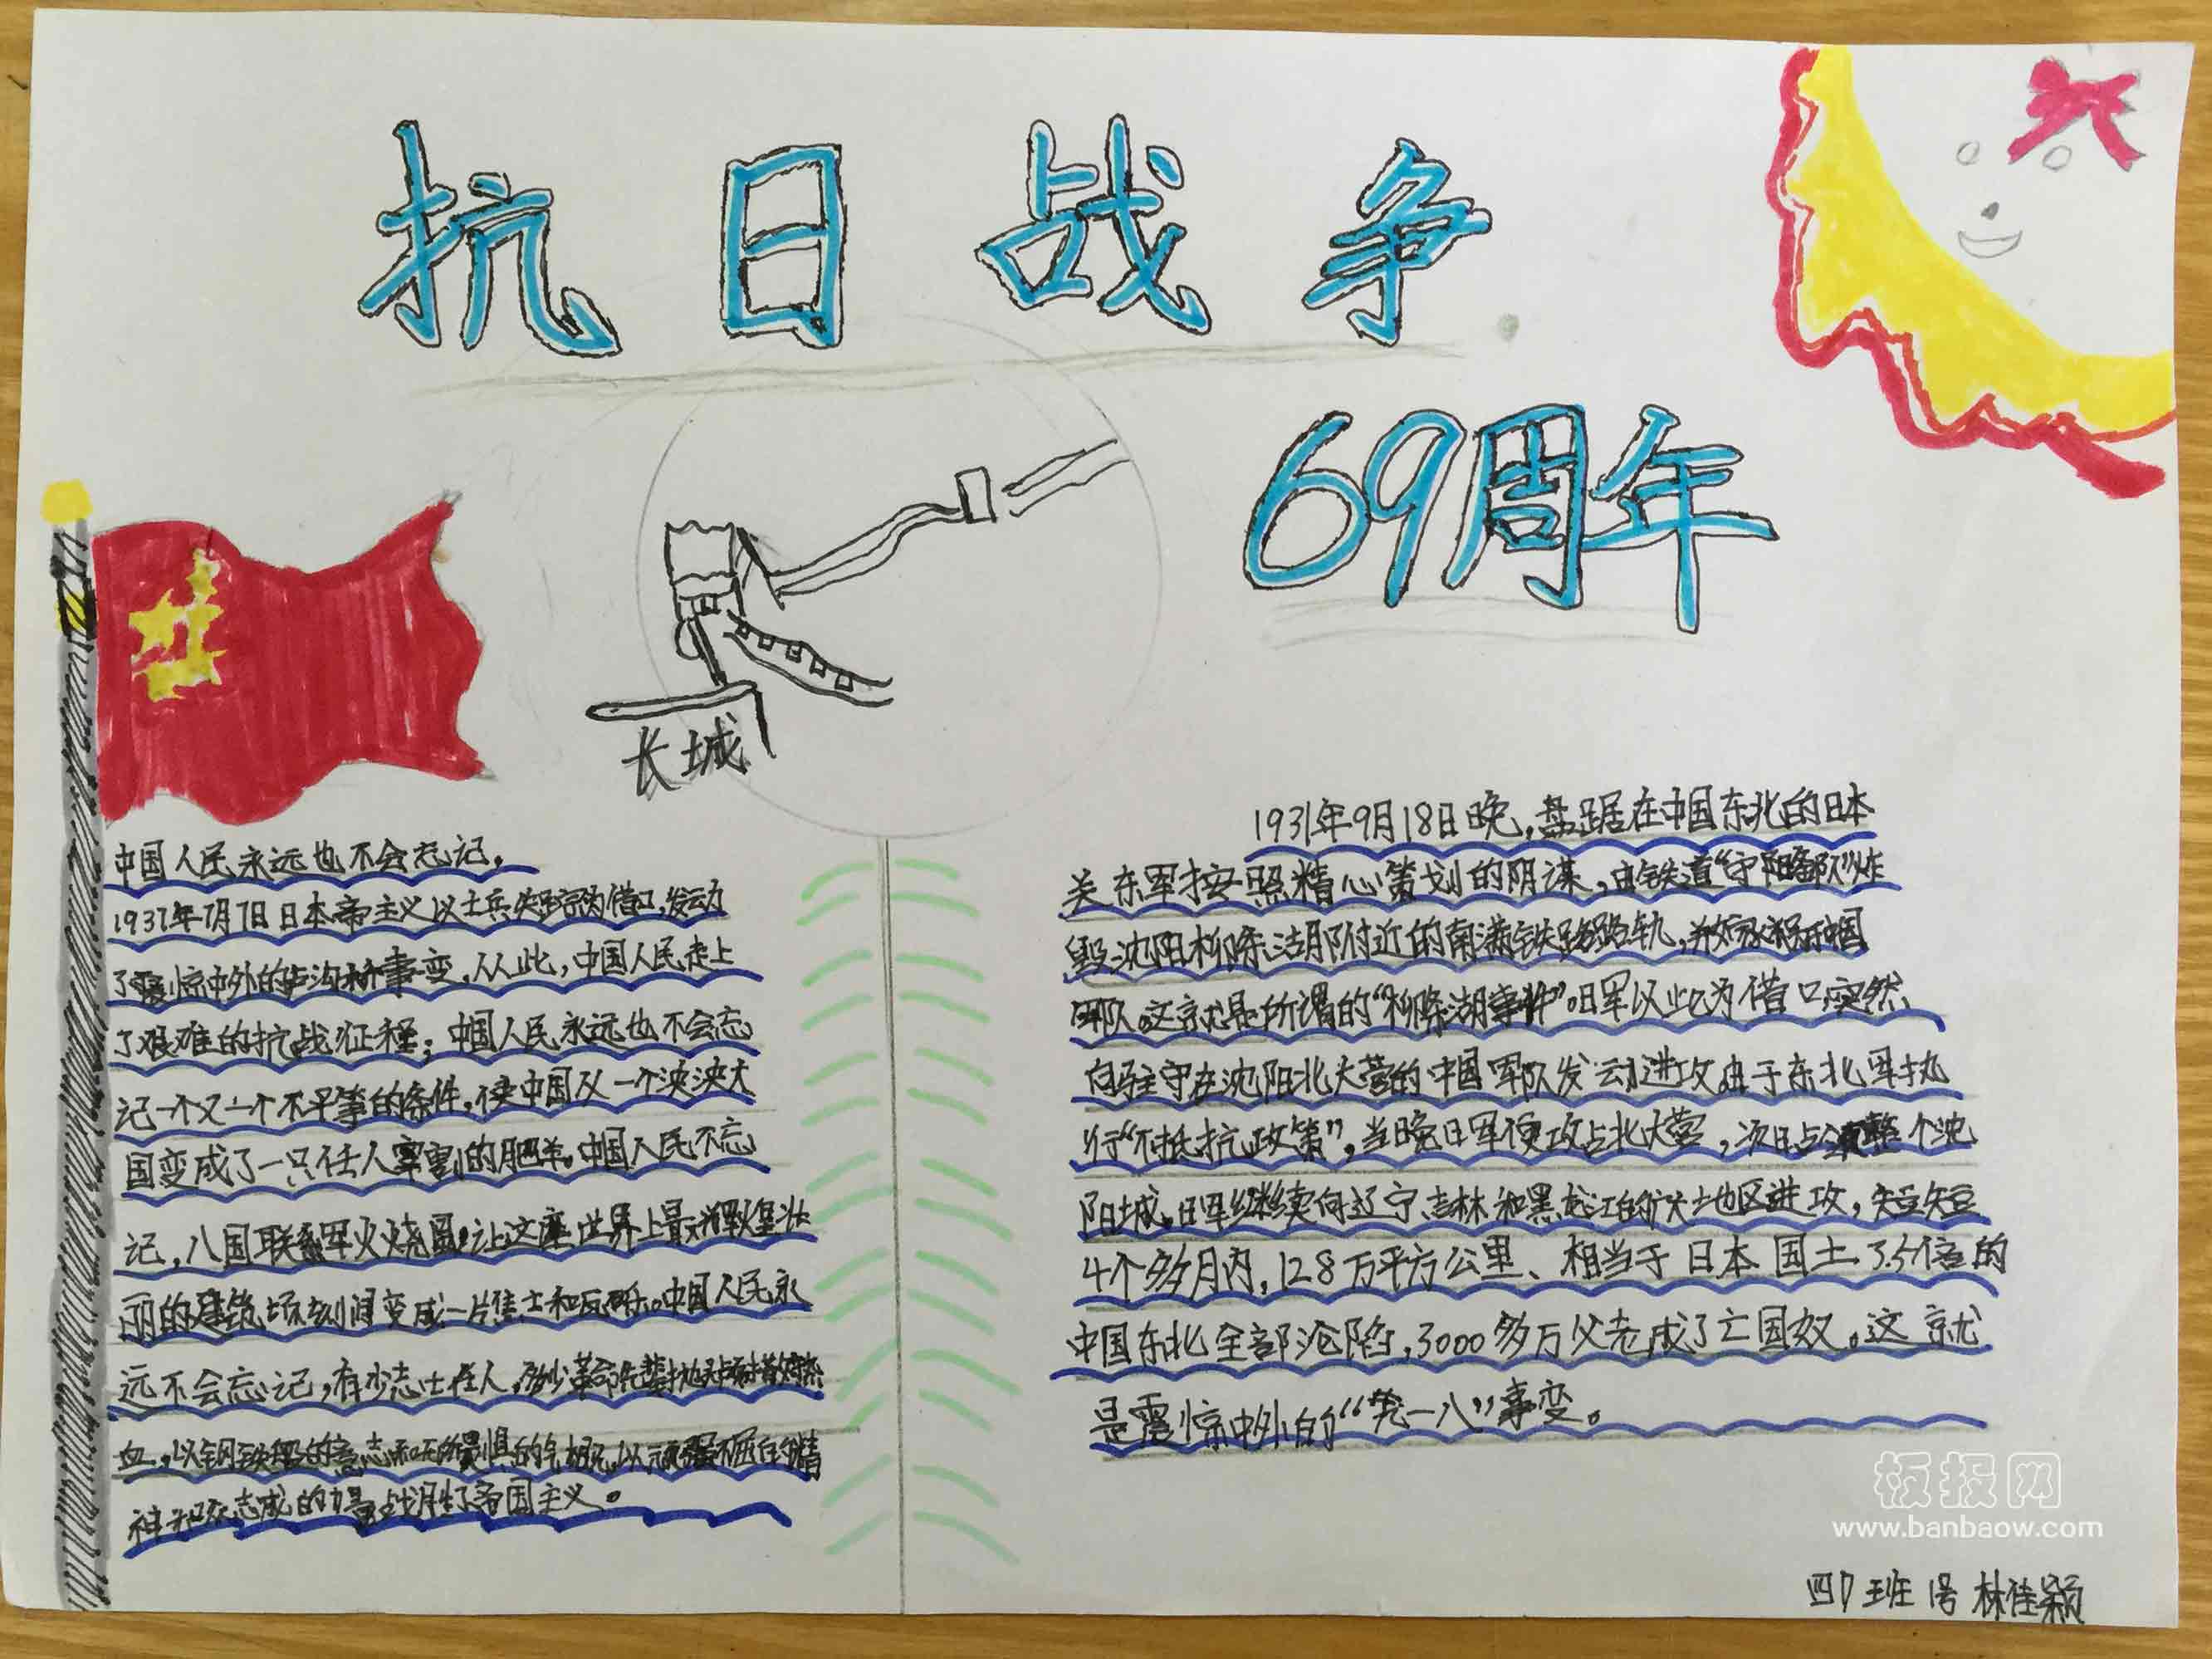 抗日战争
69周年
长城
中国人民永远也不会忘记，
1937年7月7日日本帝主义以士兵失踪为借口，发动
了震惊中外的卢沟桥事变，从此，中国人民走上
了艰难的抗战征程；中国人民永远也不会忘
记一个又一个不平等的条件，使中国从一个泱泱大
国变成了一只任人宰割的肥羊。中国人民不忘
记，八国联军火烧圆，让这座世界上最辉煌壮
丽的建筑顷刻间变成一片焦土和瓦砾。中国人民永
远不会忘记，有少志士仁人，多少革命先辈抛头颅洒热
血，以钢铁般的意志和无所畏惧的气概，以顽强不屈的精
神和众志成的力量战胜了帝国主义。
1931年9月18日晚，盘踞在中国东北的日本
关东军按照精心策划的阴谋，由铁道“守队”炸
毁沈阳柳条湖附近的南满铁路路轨，并嫁祸于中国
军队。这就是所谓的“柳条湖事件”。日军以此为借口，突然
向驻守在沈阳北大营的中国军队发动进攻。由于东北军执
行“不抵抗政策”，当晚日军便攻占北大营，次日占领整个沈
阳城。日军继续向辽宁、吉林和黑龙江的广大地区进攻，短短
4个多月内，128万平方公里、相当于日本国土3.5倍的
中国东北全部沦陷，3000多万父老成了亡国奴。这就
是震惊中外的“九一八”事变。
板报网
www.banbaow.com
四7班1号林佳颖